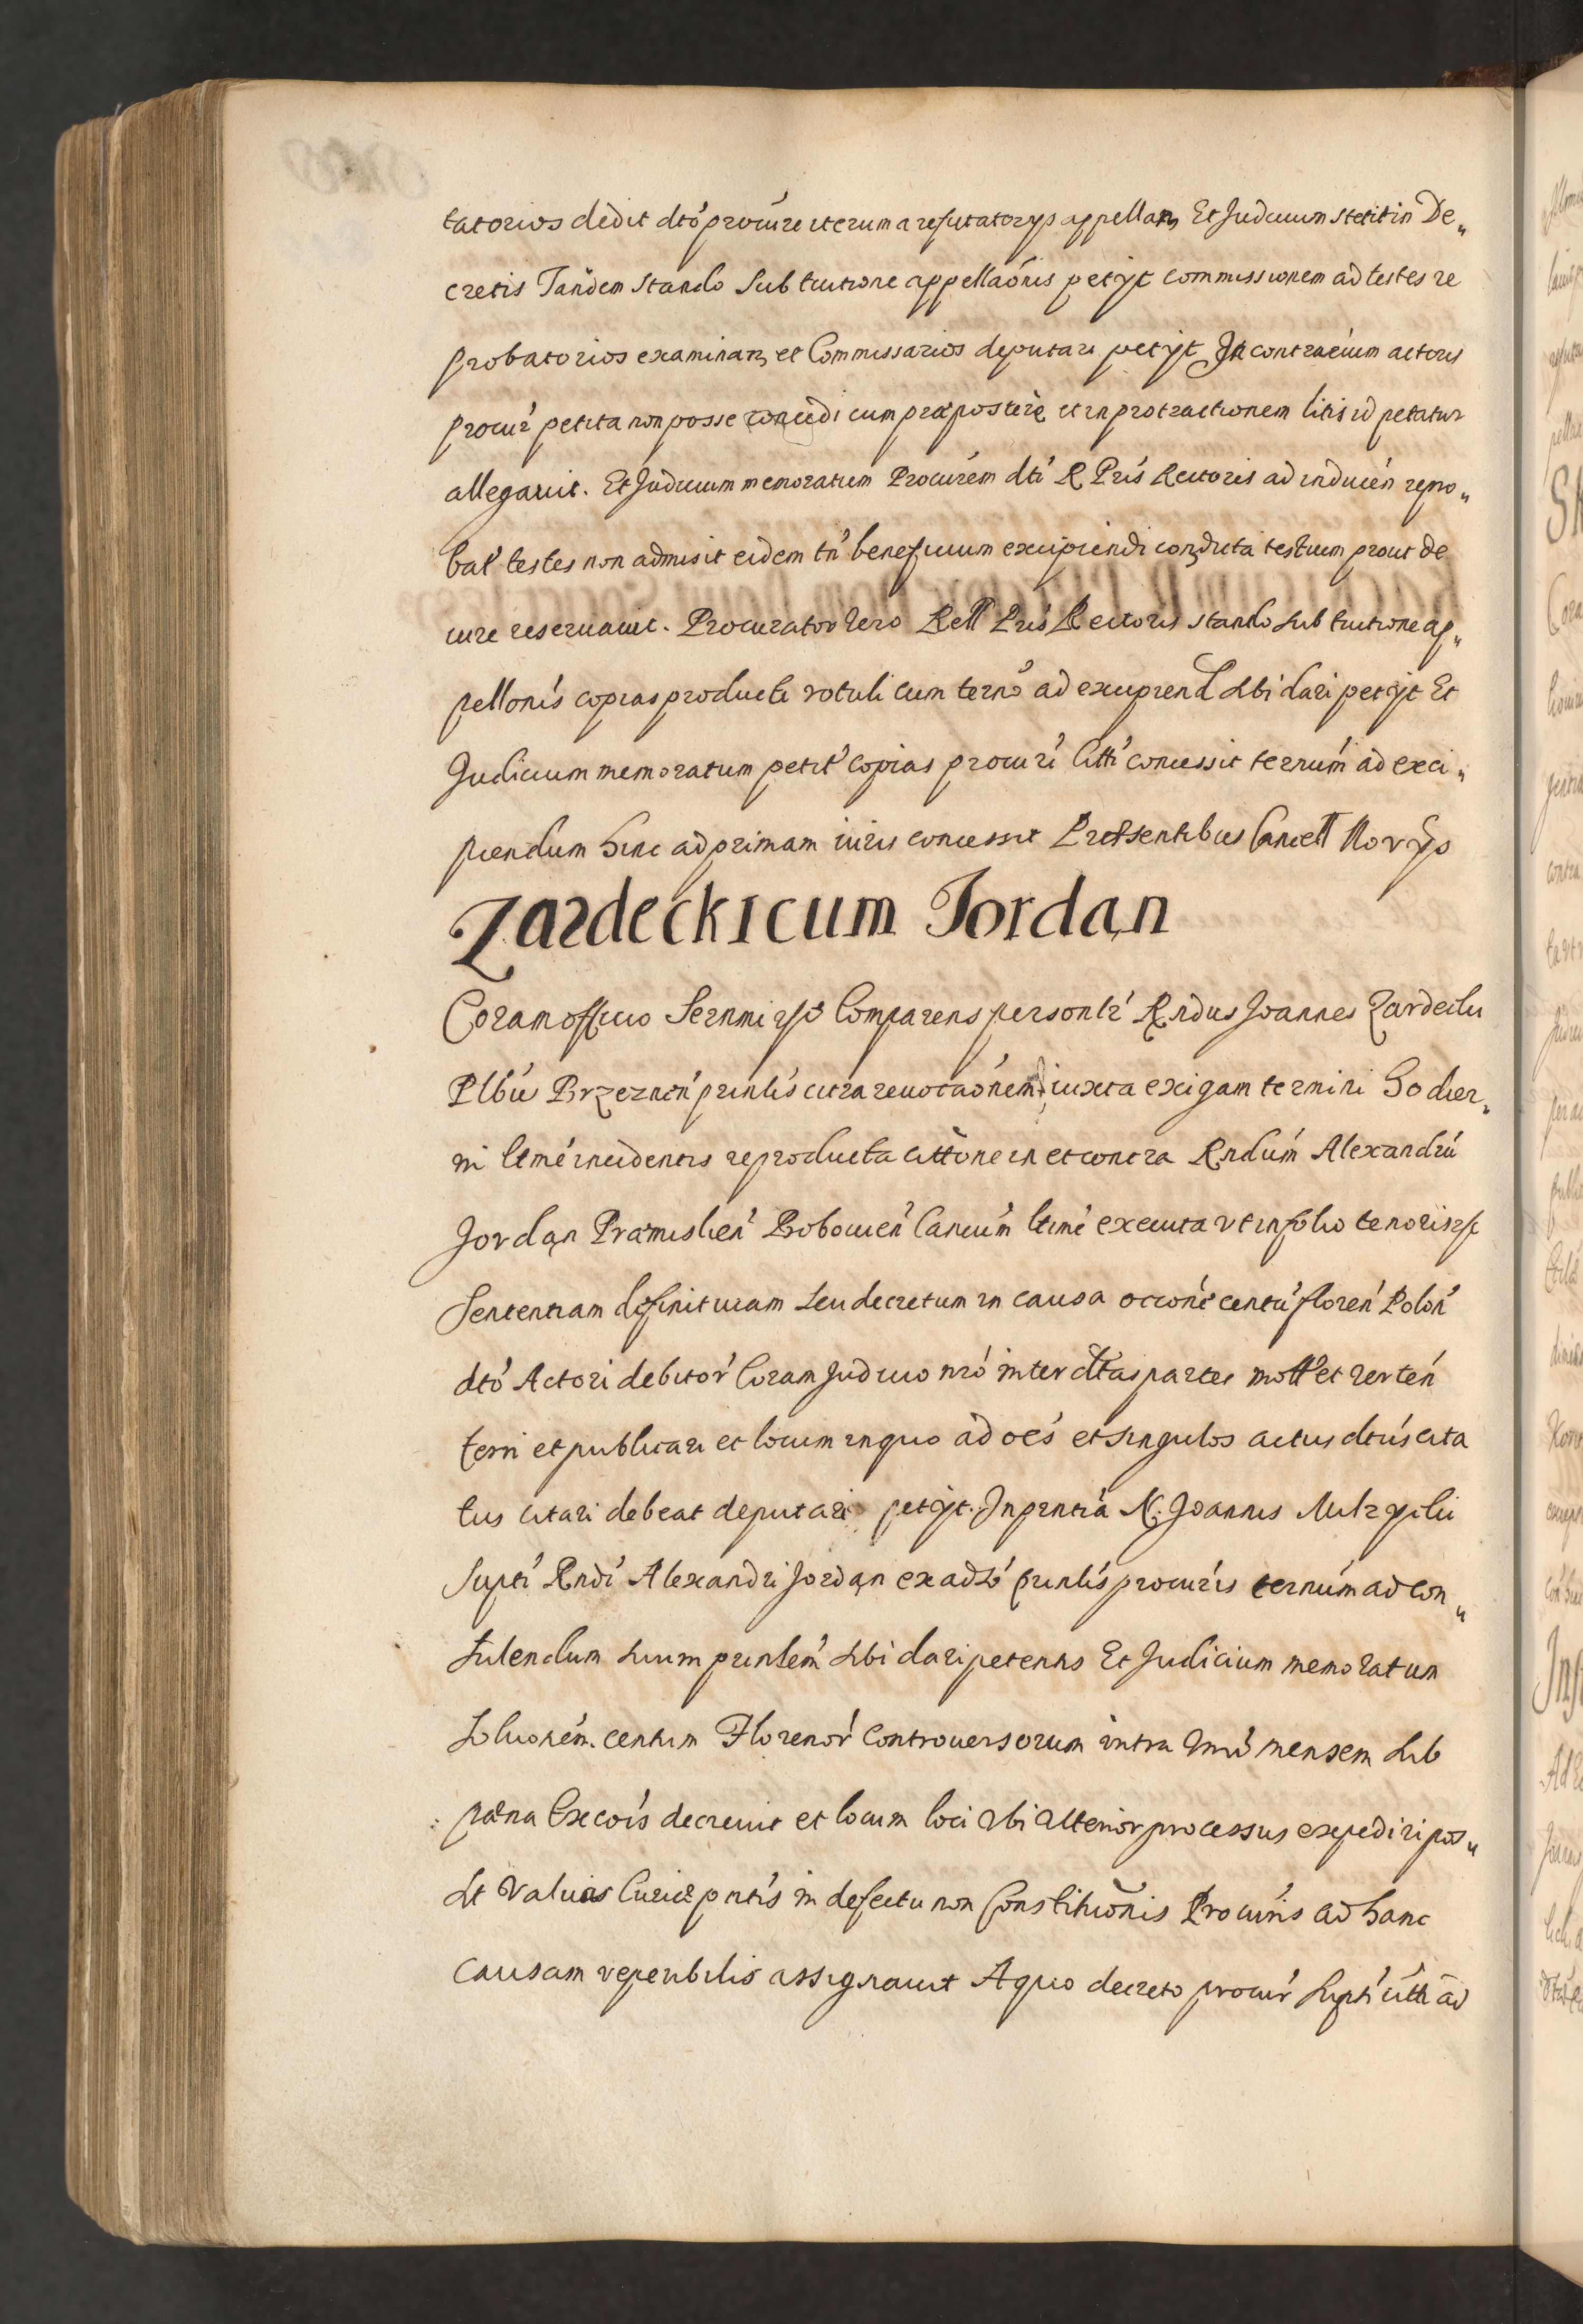 tatorios dedit dtó procúre iterum a refutatorijs appellan, Et Judicium stetit in De„
cretis Tandem stando sub tuitione appellaónis petijt commissionem ad testes re
probatorios examinan, et Commissarios deputari petijt In contraéium actoris
procur' petita non posse concedi cum præpostere et in protractionem litis id petatur
allegavit. Et Judicium memoratum Procurém dti R Pris Rectoris ad inducén repro„
bat' testes non admisit eidem tn' beneficium excipiendi con dicta testium prout de
iure reseruauit. Procurator Vero Rell Pris Rectoris stando sub tuitione ap„
pellonis copias producti rotuli cum termo ad excipiend sibi dari petijt Et
Judicium memoratum petit' copias procuri citti concessit ternúm ad exci„
piendum hinc ad primam iuris concessit Præsentibus Cancell Norijs
Zardecki cum Jordan
Coram officio Sernmi rsp Comparens personlr' Rndus Joannes Zardecki
Plbú Brzeznén prinlis citra reuocaónem iuxta exigam termini Hodier„
ni ltmé incidentis reproducta cittóne in et contra Rndúm Alexandrú
Jordan Præmislien' Bobowien' Cancúm ltimé executa ut in folio tenoris rsp
Sententiam definitiuam seu decretum in causa occóne centú floren' Polon'
dtó Actori debitor' Coram Judicio nró inter dtas partes mott' et verten'
ferri et publicari et locum in quo ad oés et singulos actus dtús cita
tus citari debeat deputari petijt. In prntia N. Joannis
Supti' Rndi' Alexandri Jordan ex adso' prinlis procuris ternúm ad con„
sulendum suum prinlem' sibi dari petentis Et Judicium memoratum
Soluoném. centum Florenor' controuersorum intra unú mensem sub
pæna Excois decreuit et locum loci ubi ulterior processus expediri pos„
sit Valuas Curiæ pntis in defectu non Constituónis Procuris ad hanc
causam reperibilis assignauit A quo decreto procur' supti' citti ad